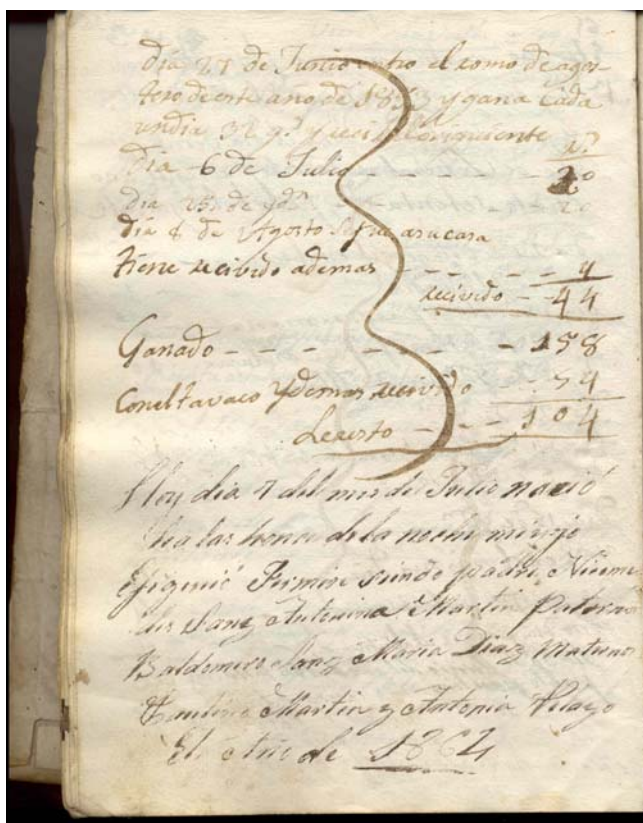 dia 27 de Junio entro el romo de agos-
tero de este ano de 1853 y gana cada
un dia 32 q.s y
dia 6 de Julio - - - 20
dia 25 de ydm 20
dia 8 de Agosto se fue a su casa
tiene recivido ademas - - - - - 4
recivido - - 44
Ganado - - - - - - - 158
Con el tavaco y demas recivido - 54
Le resto - - - 104
Hoy dia 7 del mes de Julio nació
a las honce de la noche mi yjo
Efigenio Fermin siendo padre Nicome
des Sanz Antonina Martin Paternos
Baldomero Sanz Maria Diaz Maternos
Martin y Antonia Pelayo
El Año de 1864